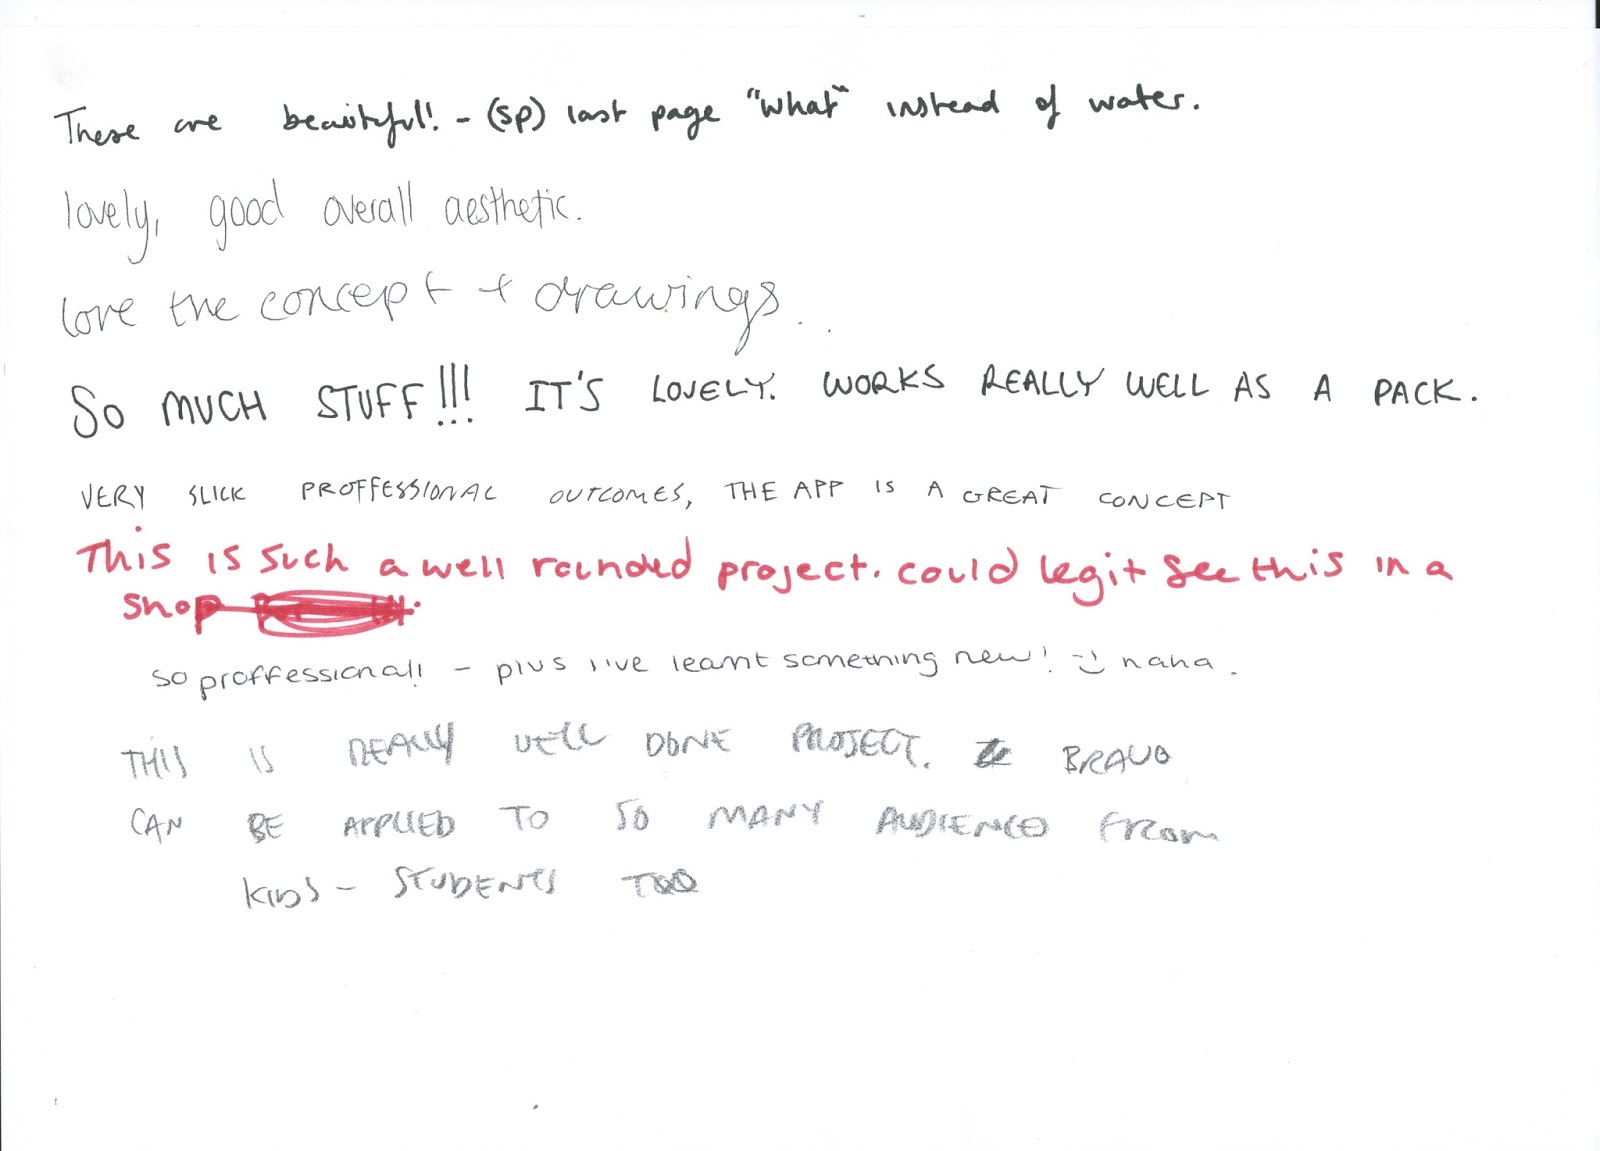 These are beautiful! - (sp) last page "what" instead of water.
lovely, good overall aesthetic.
love the concept + drawings..
SO MUCH STUFF!!! IT'S LOVELY. WORKS REALLY WELL AS A PACK.
VERY SLICK PROFFESSIONAL OUTCOMES, THE APP IS A GREAT CONCEPT
This is such a well rounded project. could legit see this in a
shop
so proffessional! - plus i've learnt something new! :) haha.
THIS IS REALLY WELL DONE PROJECT. BRAVO
CAN BE APPLIED TO SO MANY AUDIENCE FROM
KIDS - STUDENTS TOO